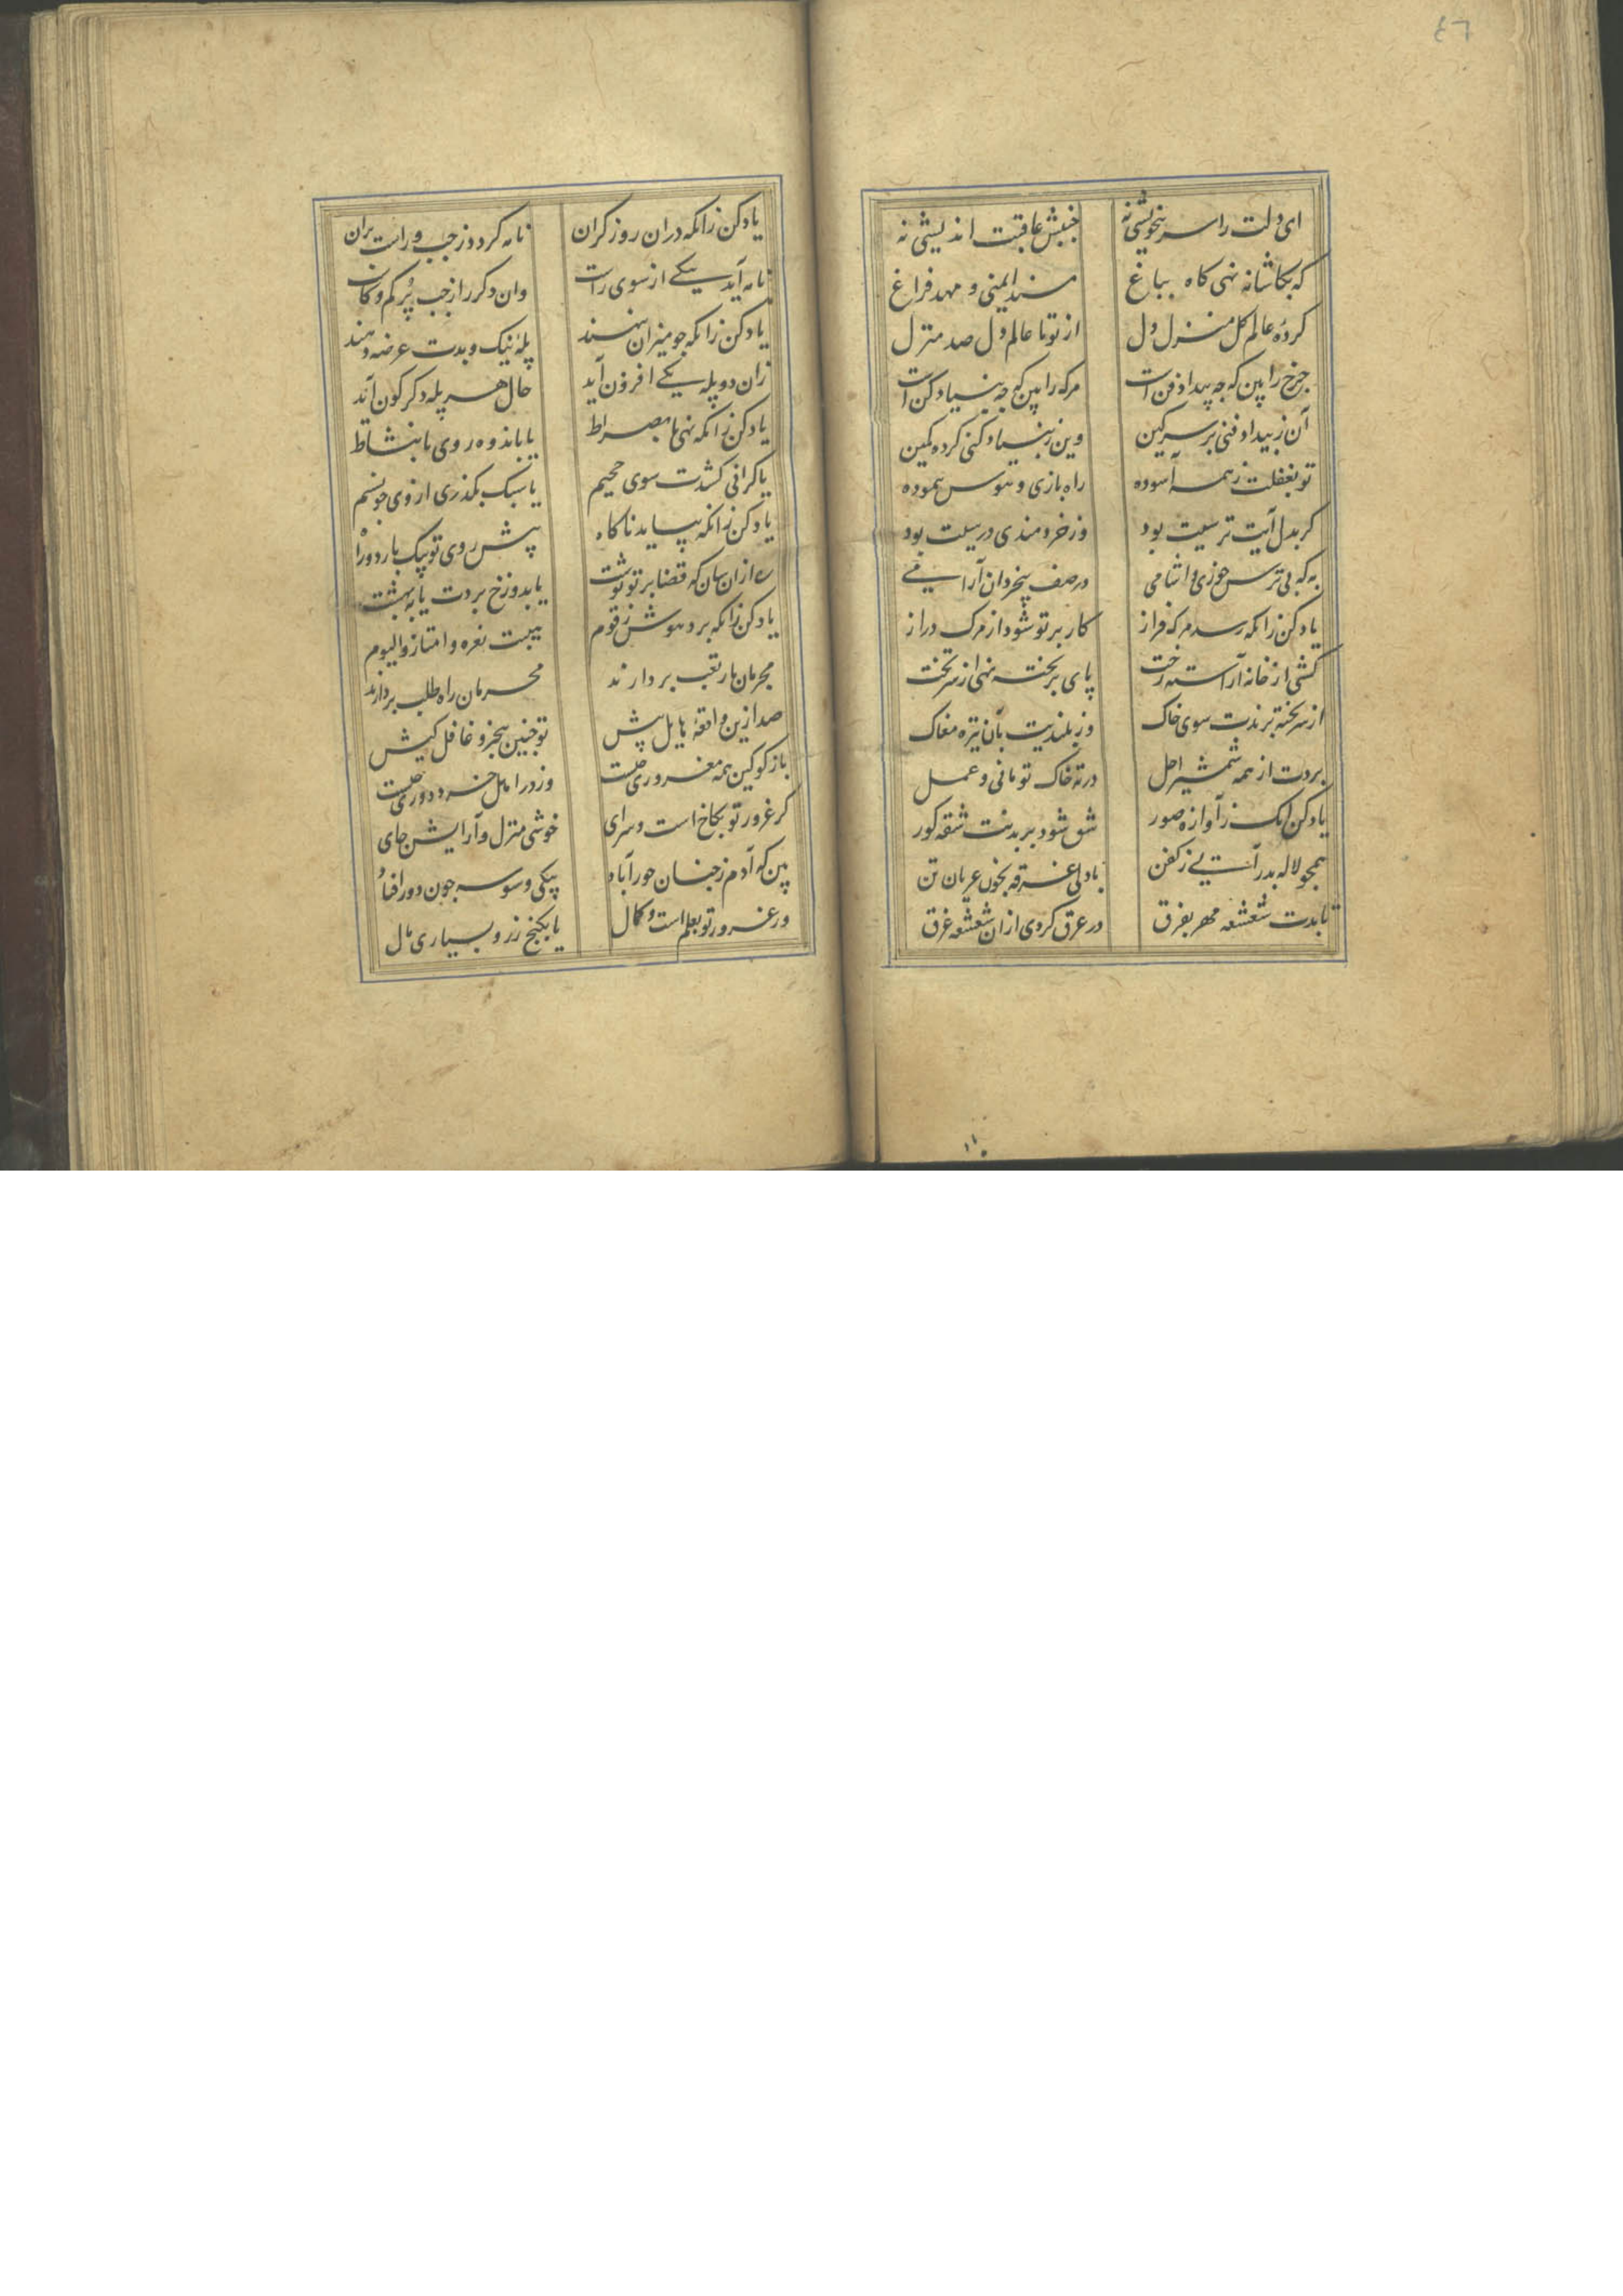 ٤٦
ای دلت را سر بیخویشی نه جنبش عاقبت اندیشی نه
که بکاشانه نهی کاه بباغ مسند ایمنی و مهد فراغ
کرده عالم کل منزل دل از تو تا عالم دل صد منزل
چرخ را بین که چه بیداد فن است مرک را بین که چه بنیاد کن است
آن ز بیداد فنی بر سر کین وین ز بنیاد کنی کرده کمین
تو بغفلت ز همه آسوده راه بازی و هوس پیموده
کر بدل آیت ترسیت بود وز خردمندی درسیت بود
به که بی ترس جوزی وا شامی در صف بیخردان آرامی
یاد کن زانکه رسد مرک فراز کار بر تو شود از مرک دراز
کشی از خانه آراسته رخت پای بر تخته نهی از سر تخت
از سر تخته برندت سوی خاک وز بلندیت بآن تیره مغاک
بردت از همه شمشیر اجل در ته خاک تو مانی و عمل
یاد کن زانک ز آوازه صور شق شود بر بدنت شقه کور
همچو لاله بدر آیی ز کفن با دلی غرقه بخون عریان تن
تابدت شعشعه مهر بفرق در عرق کردی از ان شعشعه غرق
یاد کن زانکه دران روز کران نامه کردد ز چپ و راست پران
نامه آید یکی از سوی راست وان دکر را از چپ پر کم و کاست
یاد کن زانکه چو میزان نهند پله نیک و بدت عرضه دهند
زان دو پله یکی افزون آید حال هر پله دکر کون آید
یاد کن زانکه نهی پا بصراط یا باندوه روی یا بنشاط
یا کرانی کشدت سوی جحیم یا سبک بکذری از وی چو نسیم
یاد کن زانکه بیاید ناکاه پیش روی تو یکبار دو راه
ره ازان سان که قضا بر تو نوشت یا بدوزخ بردت یا ببهشت
یاد کن زانکه برد هوش ز قوم هیبت نعره وامتازوا الیوم
مجرمان بار تعب بردارند محرمان راه طلب بردارند
صد ازین واقعه هایل پیش تو چنین بیخبر و غافل کیش
باز کو کین همه مغروری چیست وز در اهل خرد دوری چیست
کر غرور تو بکاخ است و سرای خوشی منزل و آرایش جای
بین که آدم ز جنان حورآباد بیکی وسوسه چون دور افتاد
ور غرور تو بعلم است و کمال یا بکنج زر و بسیاری مال